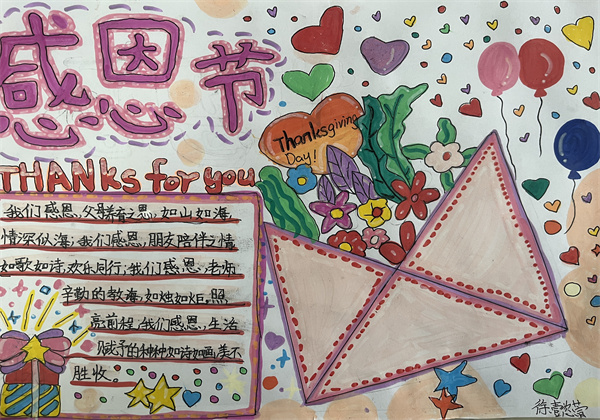 感恩节
Thanksgiving
Day!
THANKS for you
我们感恩,父母养育之恩,如山如海
情深似海;我们感恩,朋友陪伴之情
如歌如诗,欢乐同行;我们感恩,老师
辛勤的教诲,如烛如炬,照
亮前程;我们感恩,生活
赋予的种种如诗如画,美不
胜收。